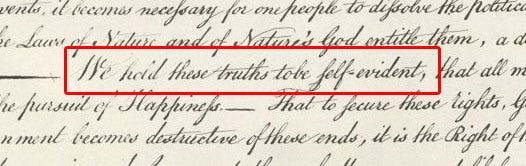 vents, it becomes necessary for one people to dissolve the political
the Laws of Nature and of Nature's God entitle them, a d
We hold these truths to be self-evident, that all m
the pursuit of Happiness.— That to secure these rights, G
nment becomes destructive of these ends, it is the Right of